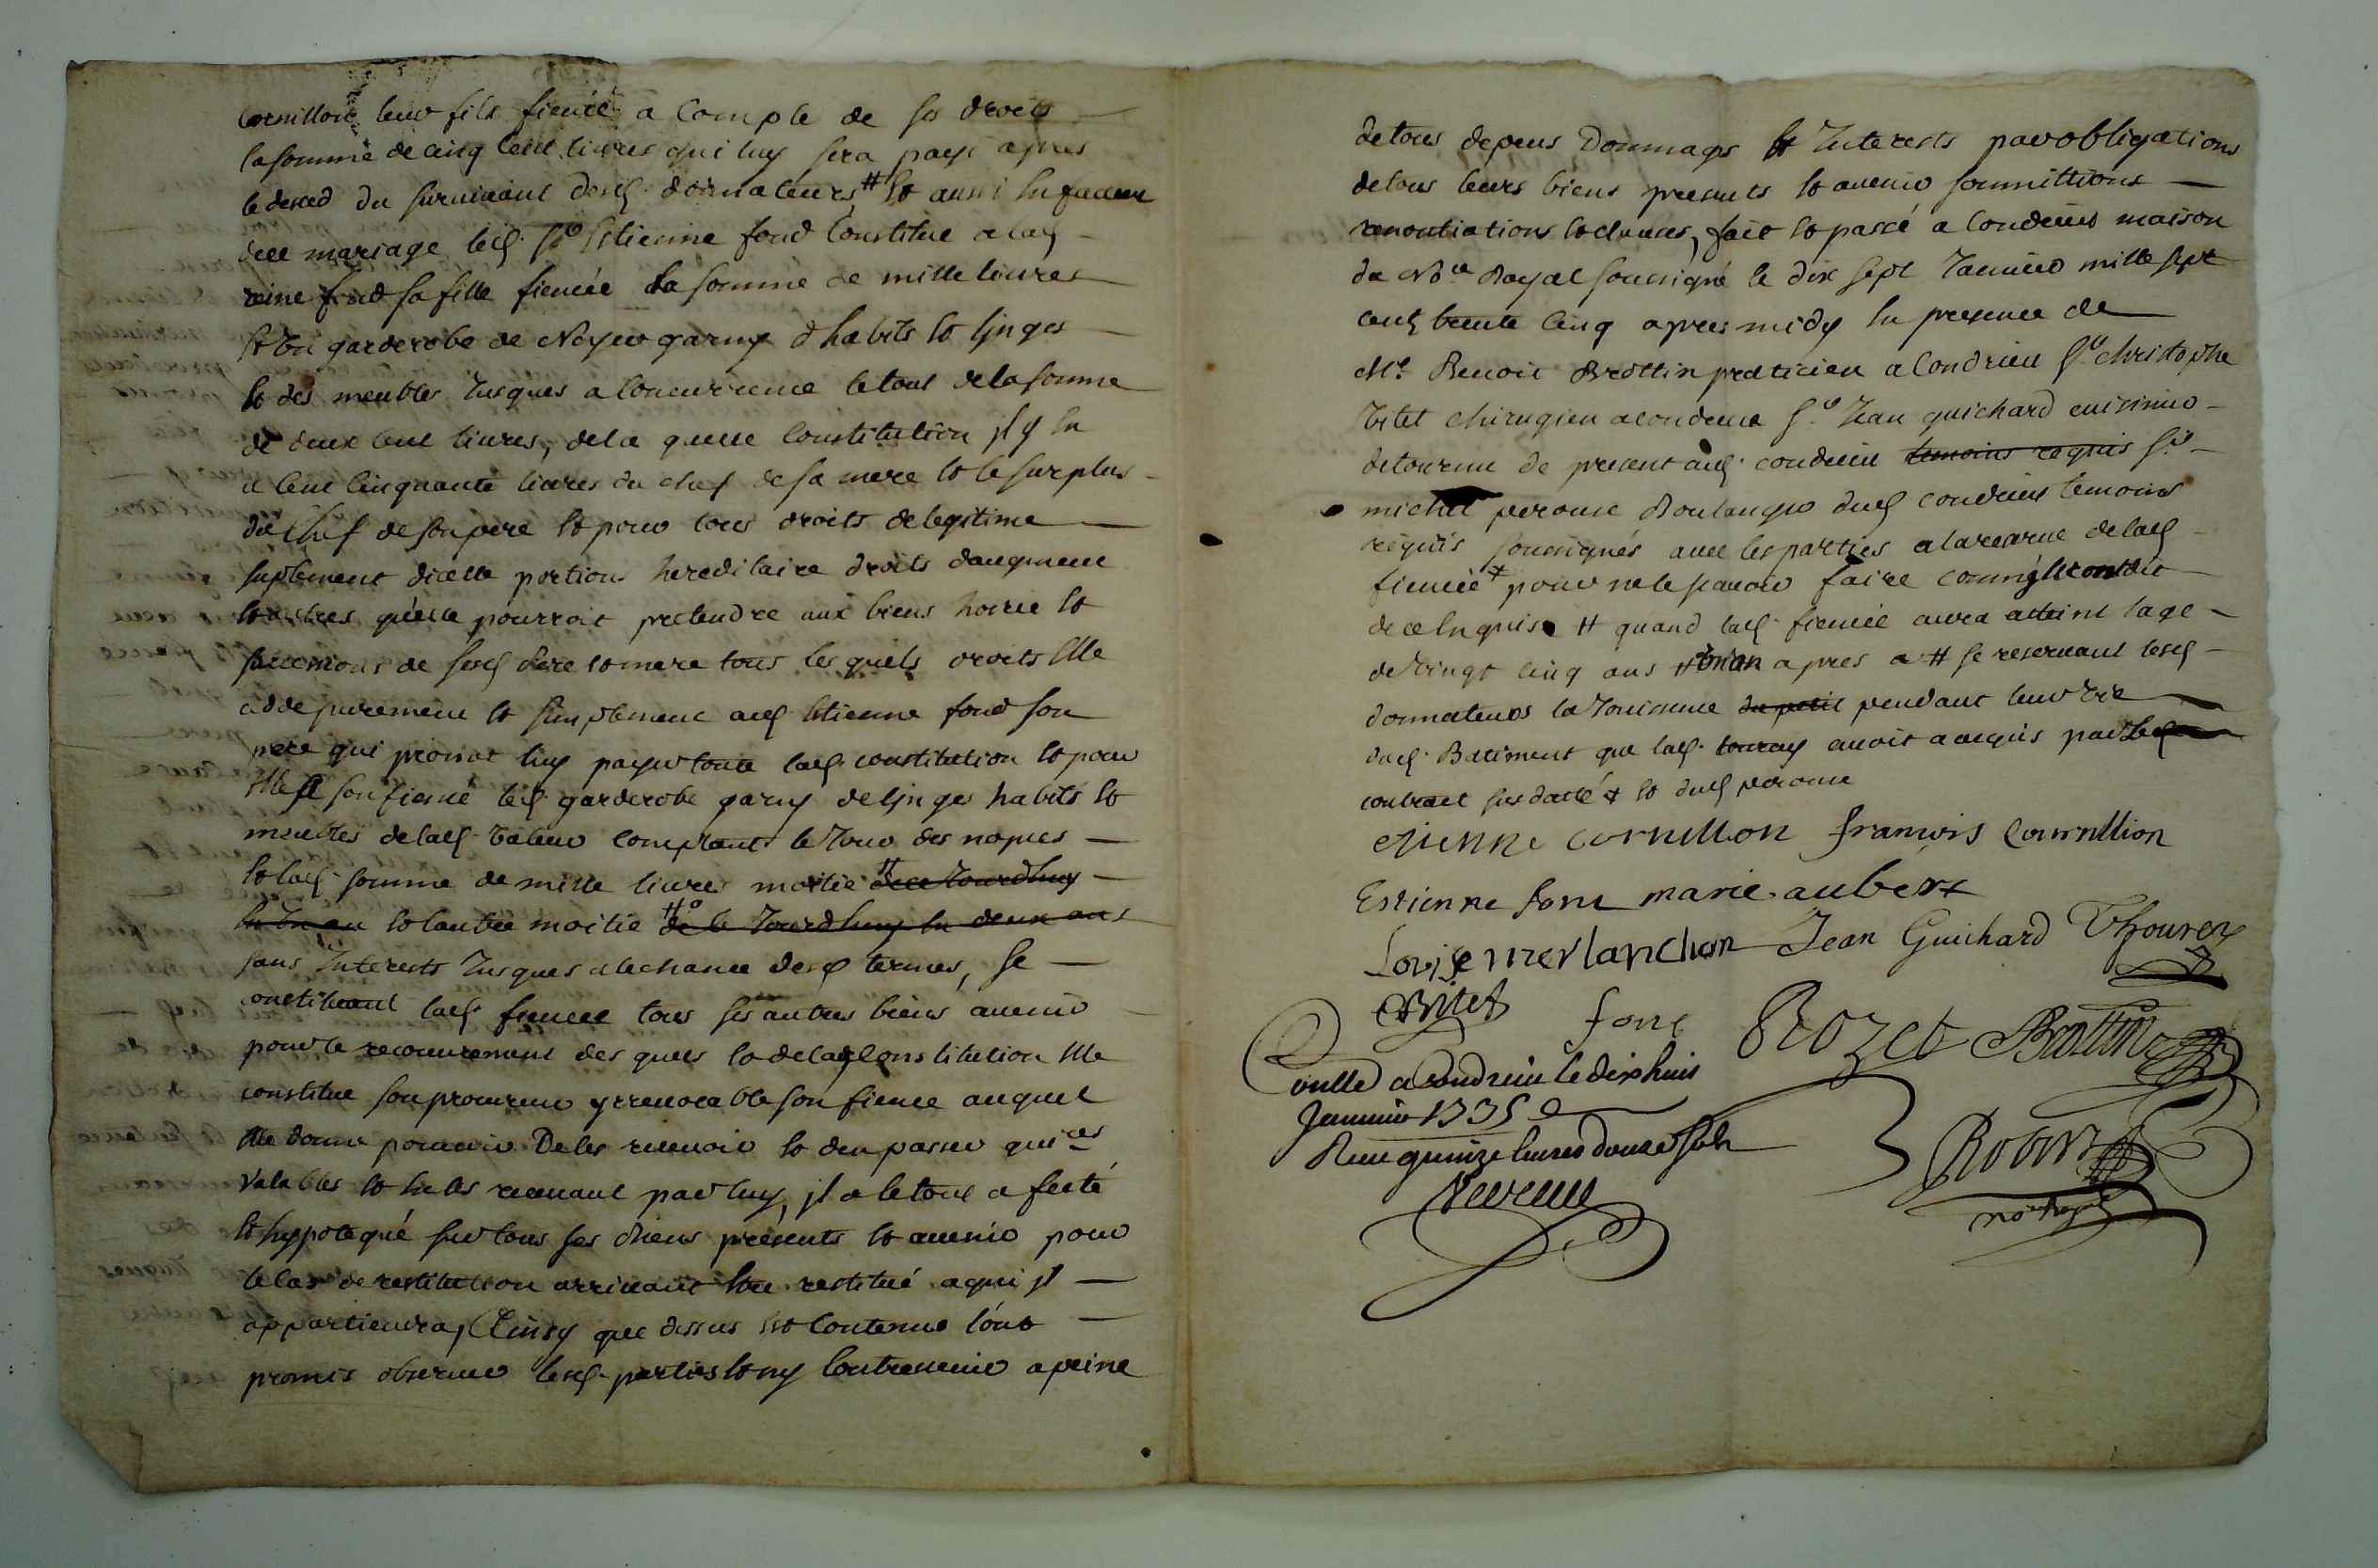 Cornillon leur fils fiencé a Compte de ses droits
la somme de cinq Cent livres qui luy sera payé apres
le deced du survivant desd. donnateurs # Et aussi En faveur
dud mariage led. Sr Etienne fond Constitue a lad
reine fond sa fille fiencée La somme de mille livres
Et Un garderobe de Noyer garny d habits Et linges
Et des meubles Jusques a Concurrence le tout de la somme
de deux Cent livres, de la quelle Constitution jl y En
a Cent Cinquante livres du chef de sa mere Et le surplus
du Chef de son pere Et pour tous droits de legitime
suplement dicelle portions hereditaire droits daugment
Et autres quelle pourroit pretendre aux biens hoirie Et
successions de sesd pere Et mere tous les quels droits Elle
cedde purement Et simplement aud Etienne fond son
pere qui promet luy payer toute lad constitution Et pour
Elle a son fiencé led. garderobe garny de linges habits Et
meubles de lad. valeur Comptant le Jour des nopces
Et lad. somme de mille livres moitié # de ce Jourdhuy
En Un an Et lautre moitié # de ce Jourdhuy En deux ans
sans Interests Jusques a lechance desd termes, se
constituant lad. fiencée tous ses autres biens avenir
pour le recouvrement des quels Et de lad Constitution Elle
constitue son procureur yrrevocable son fiencé auquel
Elle donne pouvoir De les recevoir Et den passer quices
Valables Et En les recevant par luy, jl a le tout afecté
Et hypotequé sur tous ses biens présents Et avenir pour
le cas de restitution arrivant Etre restitué a qui jl
appartiendra, Ainsy que dessus Est Contenus l'ont
promis observer lesd. parties Et ny Contrevenir a peine
de tous depens Dommages Et Interests par obligations
de tous leurs biens presents Et avenir soumissions
renontiations Et clauses, fait Et passé a Condrieu maison
du Nore Royal soussigné le dix sept Janvier mille sept
cent trente Cinq apres midy En presence de
Me. Benoit Brottin praticien a Condrieu Sr. Christophe
Vitet chirugien a Condrieu Sr. Jean guichard cuisinier
de tournu de present aud. condrieu temoins requis Sr.
michel perouse Boulanger dud condrieu temoins
requis soussignés avec les parties a la reserve de lad
fiencée + pour ne le scavoir faire comme Elle ont dit
de ce Enquise # quand lad. fiencée aura atteint lage
de vingt Cinq ans # Un an apres # se reservant lesd
donnateurs la Jouissance du petit pendant leur vie
dud. Batiment que lad. touray avoit acquis par led
contract sus datté + Et dud perouse
etienne cornillon francois Cournillion
Estienne font marie aubert
Louise merlanchon Jean Guichard Thouren
Vitet font Rozet Brottin
Controllé a Condrieu le dixhuit
Janvier 1735
Receu quinze livres douze sols
Robert
not Royal